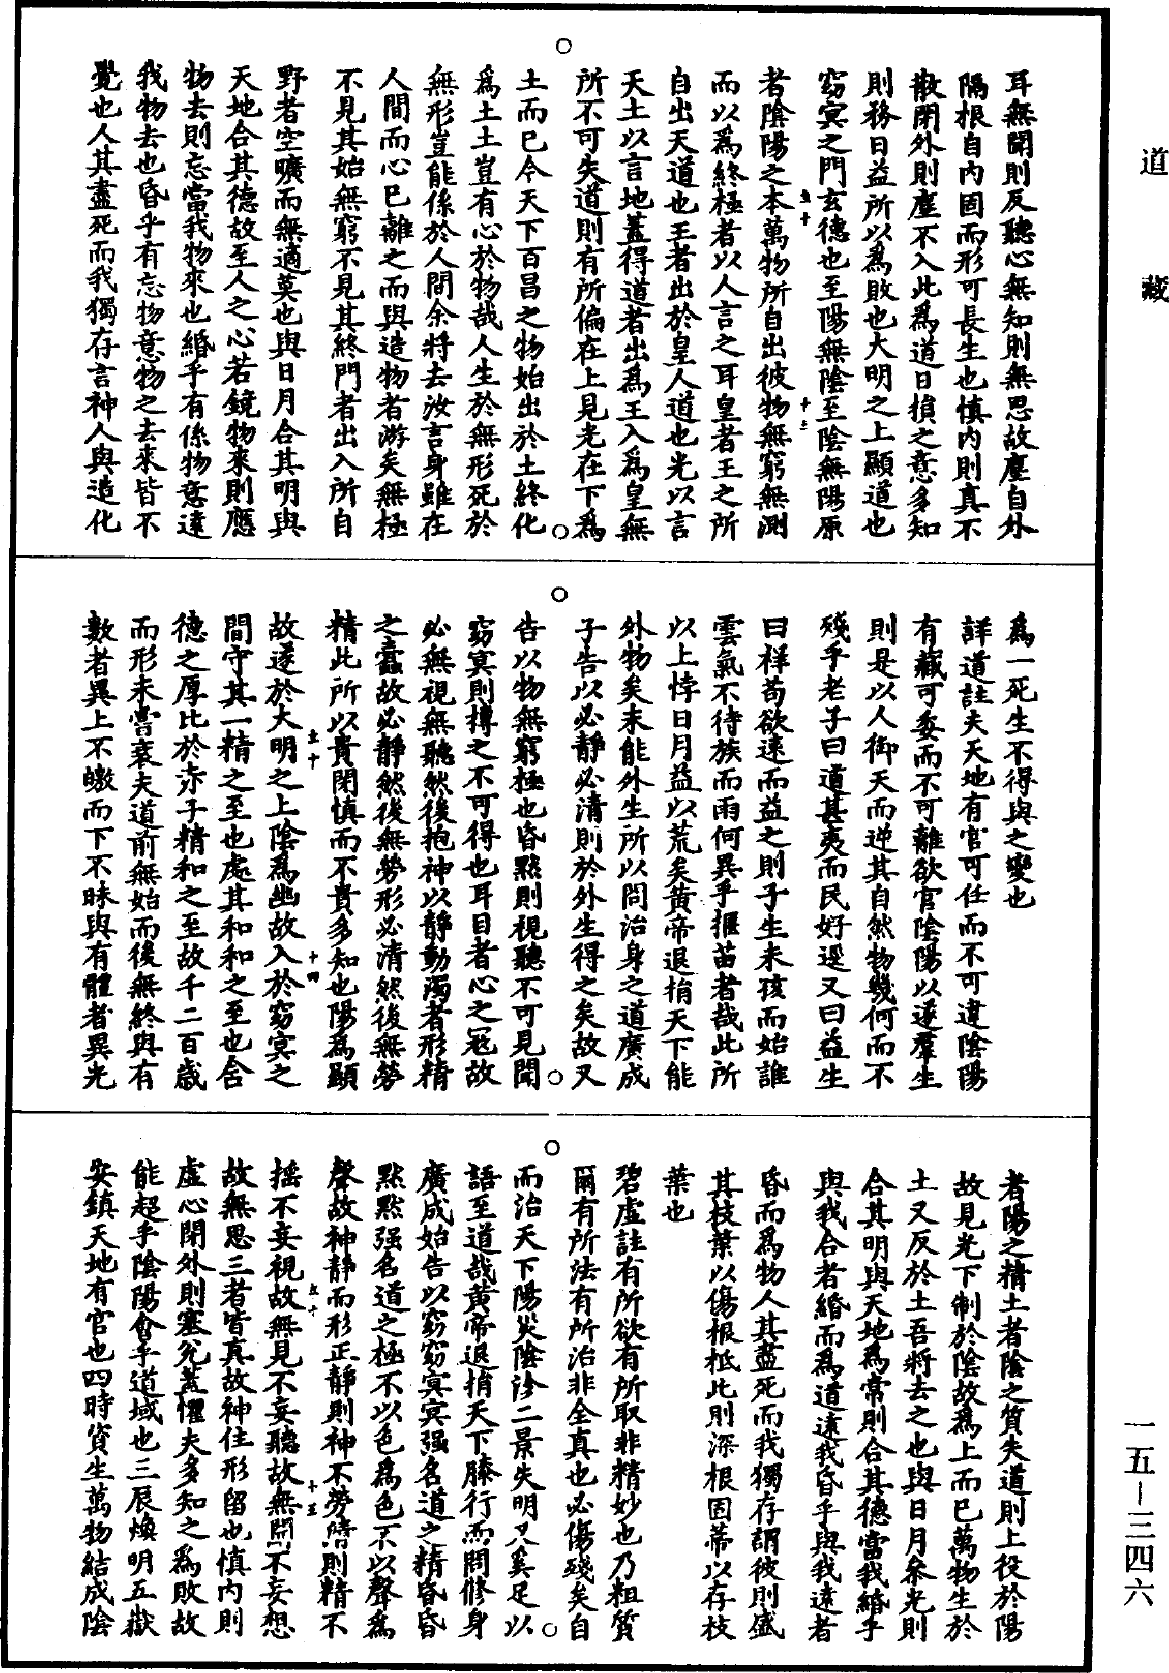 道藏
耳無聞則反聽心無知則無思故塵自外
隔根自內固而形可長生也慎內則真不
散閉外則塵不入此為道日損之意多知
則務日益所以為敗也大明之上顯道也
窈冥之門玄德也至陽無陰至陰無陽原
者陰陽之本萬物所自出彼物無窮無測
而以為終極者以人言之耳皇者王之所
自出天道也王者出於皇人道也光以言
天土以言地蓋得道者出為王入為皇無
所不可失道則有所偏在上見光在下為
土而已今天下百昌之物始出於土終化
為土土豈有心於物哉人生於無形死於
無形豈能係於人間余將去汝言身雖在
人間而心已離之而與造物者游矣無極
不見其始無窮不見其終門者出入所自
野者空曠而無適莫也與日月合其明與
天地合其德故至人之心若鏡物來則應
物去則忘當我物來也緡乎有係物意遠
我物去也昏乎有忘物意物之去來皆不
覺也人其盡死而我獨存言神人與造化
為一死生不得與之變也
詳道註夫天地有官可任而不可違陰陽
有藏可委而不可離欲官陰陽以遂羣生
則是以人御天而逆其自然物幾何而不
殘乎老子曰道甚夷而民好逕又曰益生
曰祥苟欲速而益之則子生未孩而始誰
雲氣不待族而雨何異乎揠苗者哉此所
以上悖日月益以荒矣黃帝退捐天下能
外物矣未能外生所以問治身之道廣成
子告以必靜必清則於外生得之矣故又
告以物無窮極也昏默則視聽不可見聞
窈冥則摶之不可得也耳目者心之寇故
必無視無聽然後抱神以靜動濁者形精
之蠹故必靜然後無勞形必清然後無勞
精此所以貴閉慎而不貴多知也陽為顯
故遂於大明之上陰為幽故入於窈冥之
間守其一精之至也處其和和之至也含
德之厚比於赤子精和之至故千二百歲
而形未嘗衰夫道前無始而後無終與有
數者異上不皦而下不昧與有體者異光
者陽之精土者陰之質失道則上役於陽
故見光下制於陰故為上而已萬物生於
土又反於土吾將去之也與日月參光則
合其明與天地為常則合其德當我緡乎
與我合者緡而為道遠我昏乎與我遠者
昏而為物人其盡死而我獨存謂彼則盛
其枝葉以傷根柢此則深根固蔕以存枝
葉也
碧虛註有所欲有所取非精妙也乃粗質
爾有所法有所治非全真也必傷殘矣自
而治天下陽災陰沴二景失明又奚足以
語至道哉黃帝退捐天下膝行而問修身
廣成始告以窈窈冥冥强名道之精昏昏
默默强名道之極不以色為色不以聲為
聲故神靜而形正靜則神不勞清則精不
搖不妄視故無見不妄聽故無聞不妄想
故無思三者皆真故神住形留也慎內則
虛心閉外則塞兌蓋懼夫多知之為敗故
能超乎陰陽會乎道域也三辰煥明五嶽
安鎮天地有官也四時資生萬物結成陰
一五—三四六